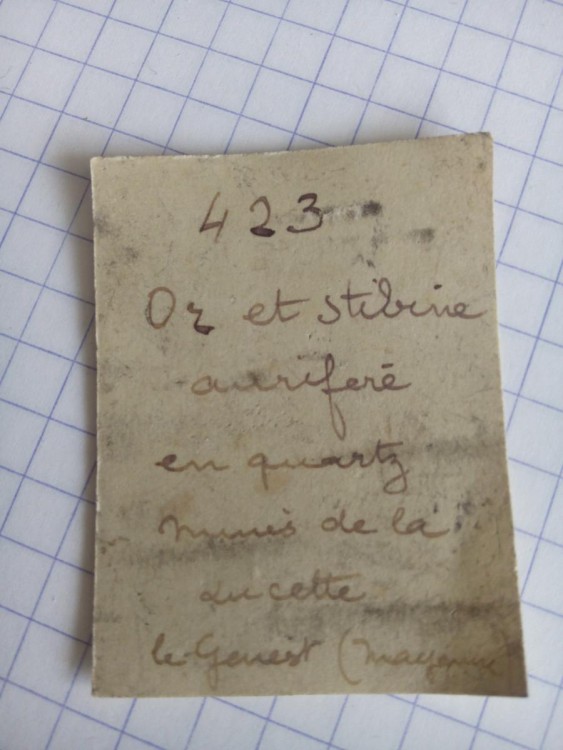 423
Or et stibine
auriferé
en quartz
mines de la
Lucette
le Genest (Mayenne)